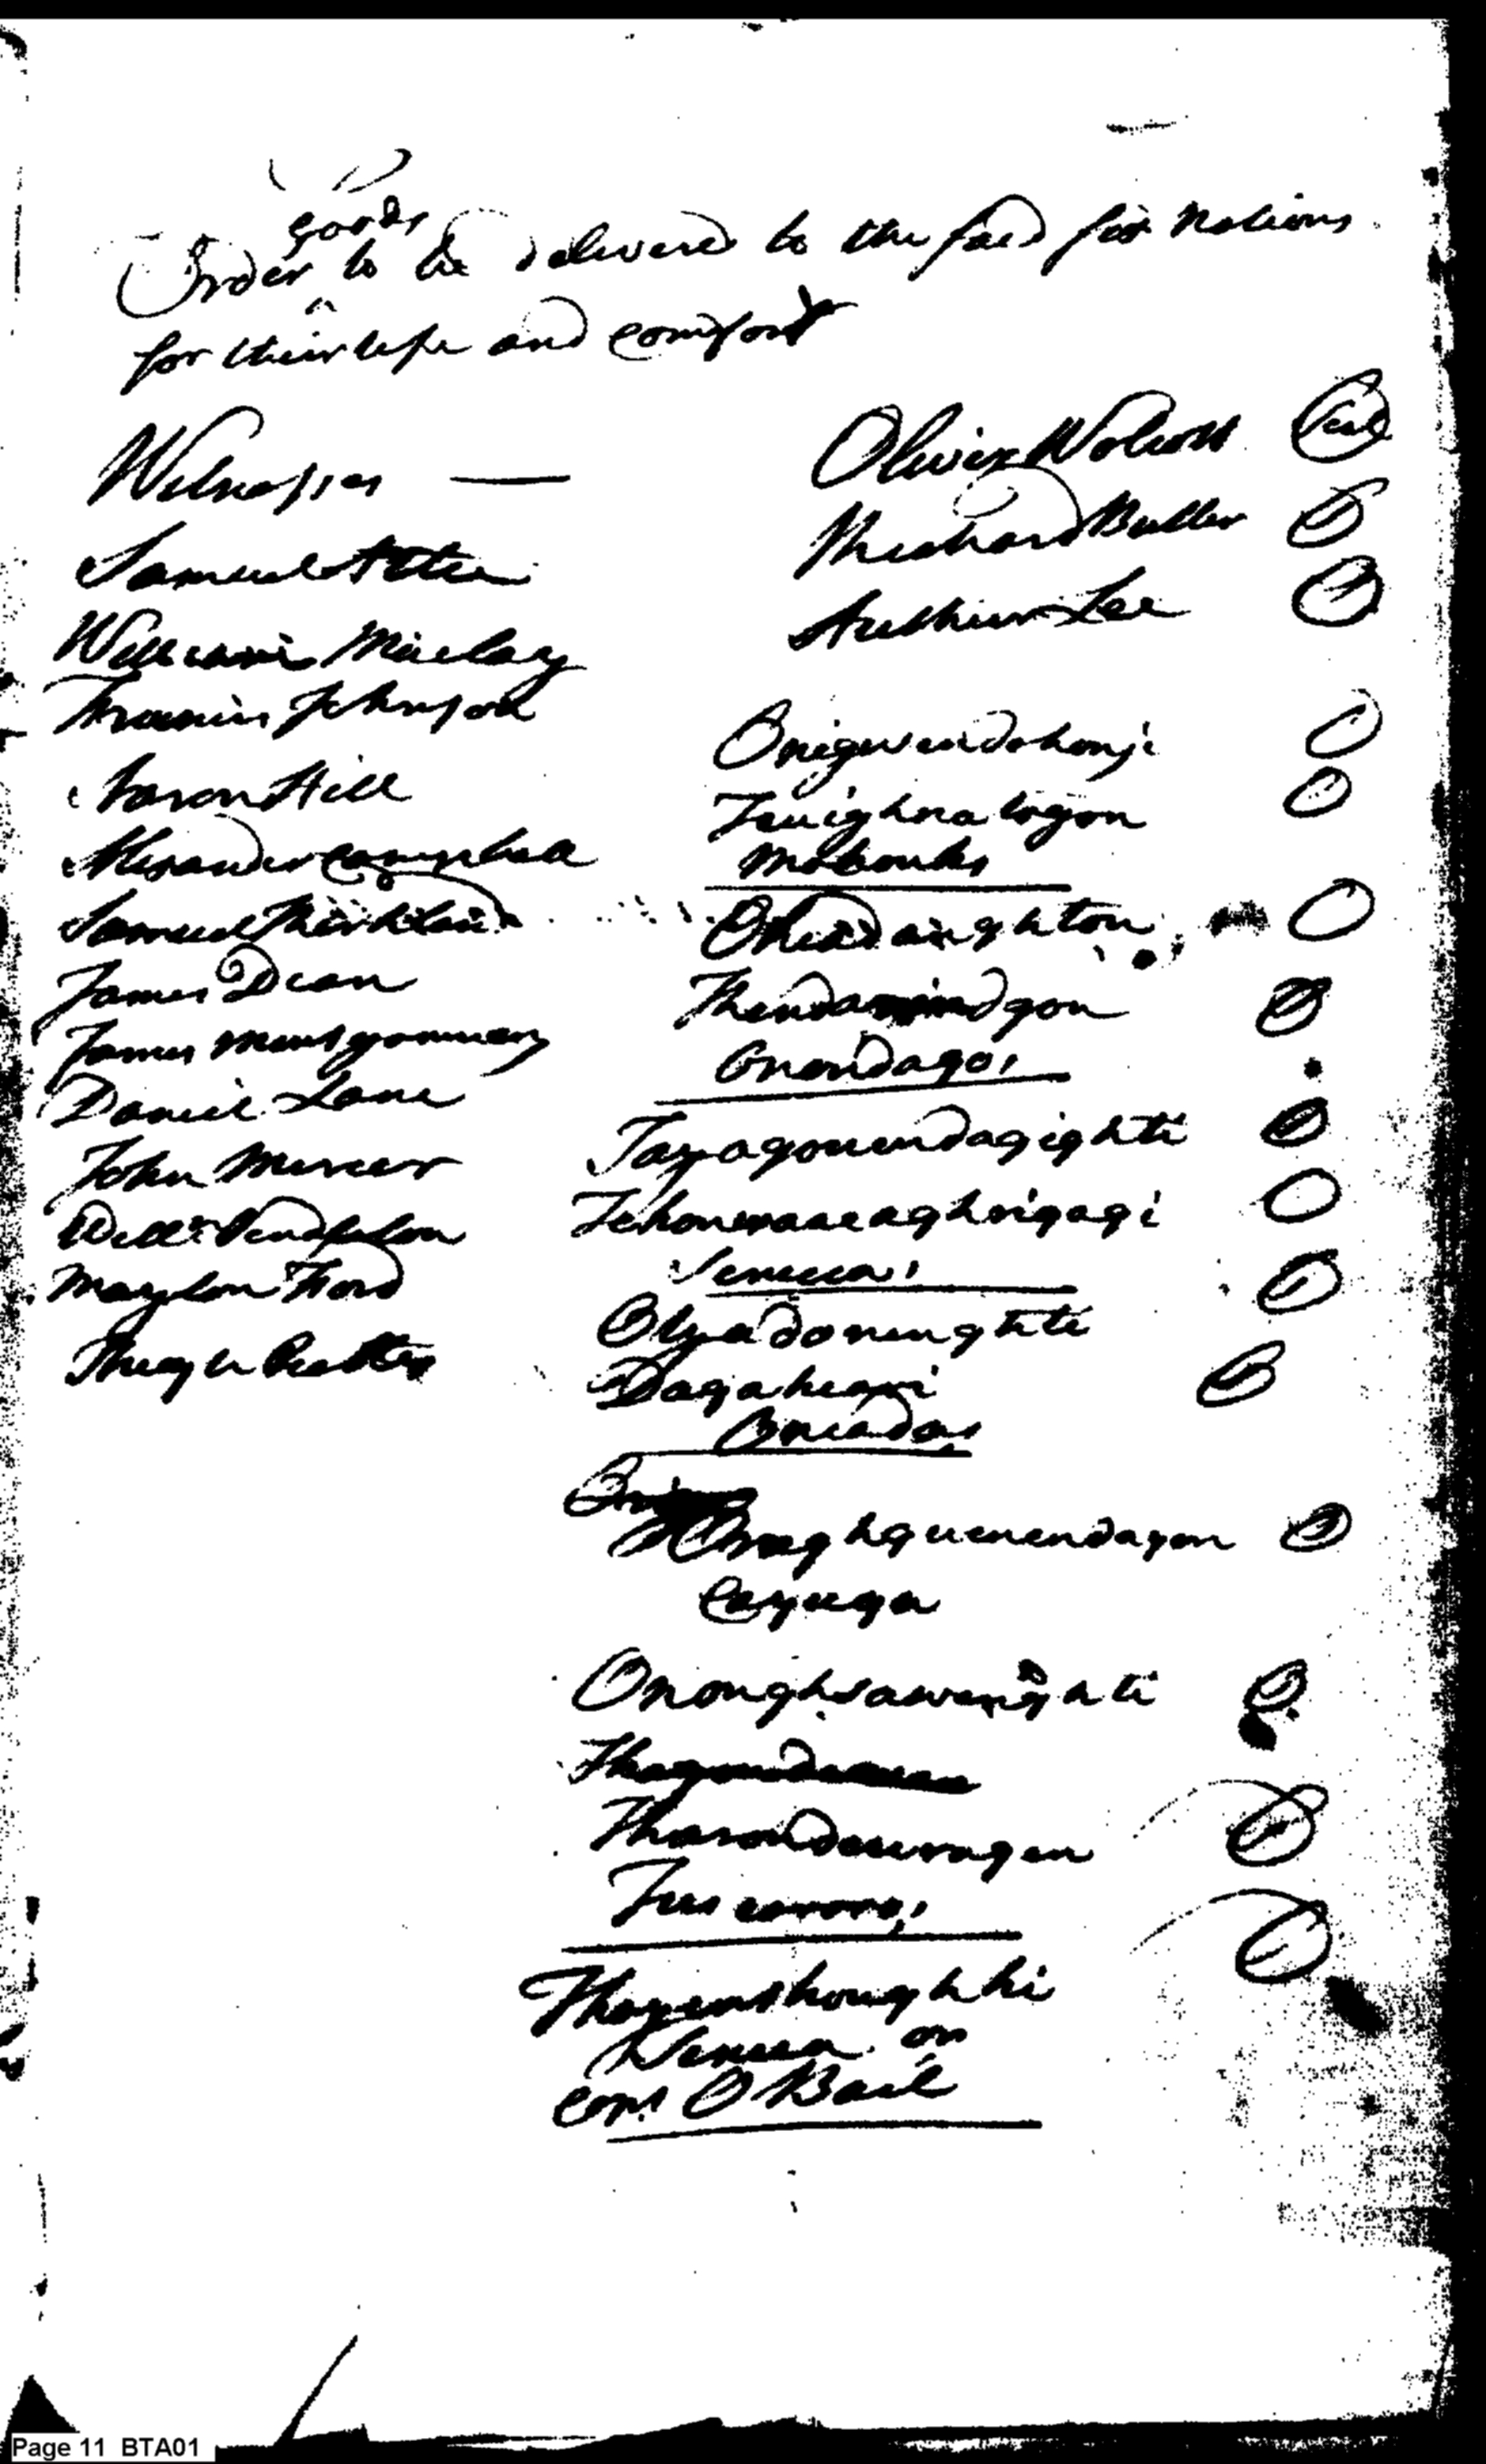 goods
Order to be delivered to the said six Nations
for their use and comfort
Witnesses —
Samuel Atlee
William Maclay
Francis Johnson
Aaron Hill
Alexander Campbell
Samuel Kirkland
James Dean
James Montgomery
Daniel Lane
John Mercer
Will. Pendleton
Maylon Ford
Hugh Peebles
Oliver Wolcott Seal
Richard Butler
Arthur Lee
Onigwendahonji
Teuighnatogon
Mohawks
Oheadarighton
Onondagas
Tayagonendagighti
Tehonwaaeaghrigagi
Senecas
Otyadonenghti
Dagaheari
Oneidas
Oraghquenendagon
Cayuga
Ononghsawenghti
Tharondawagen
Tuscaroras
Thayenthoughki
Seneca or
Corn O Bail
Page 11 BTA01